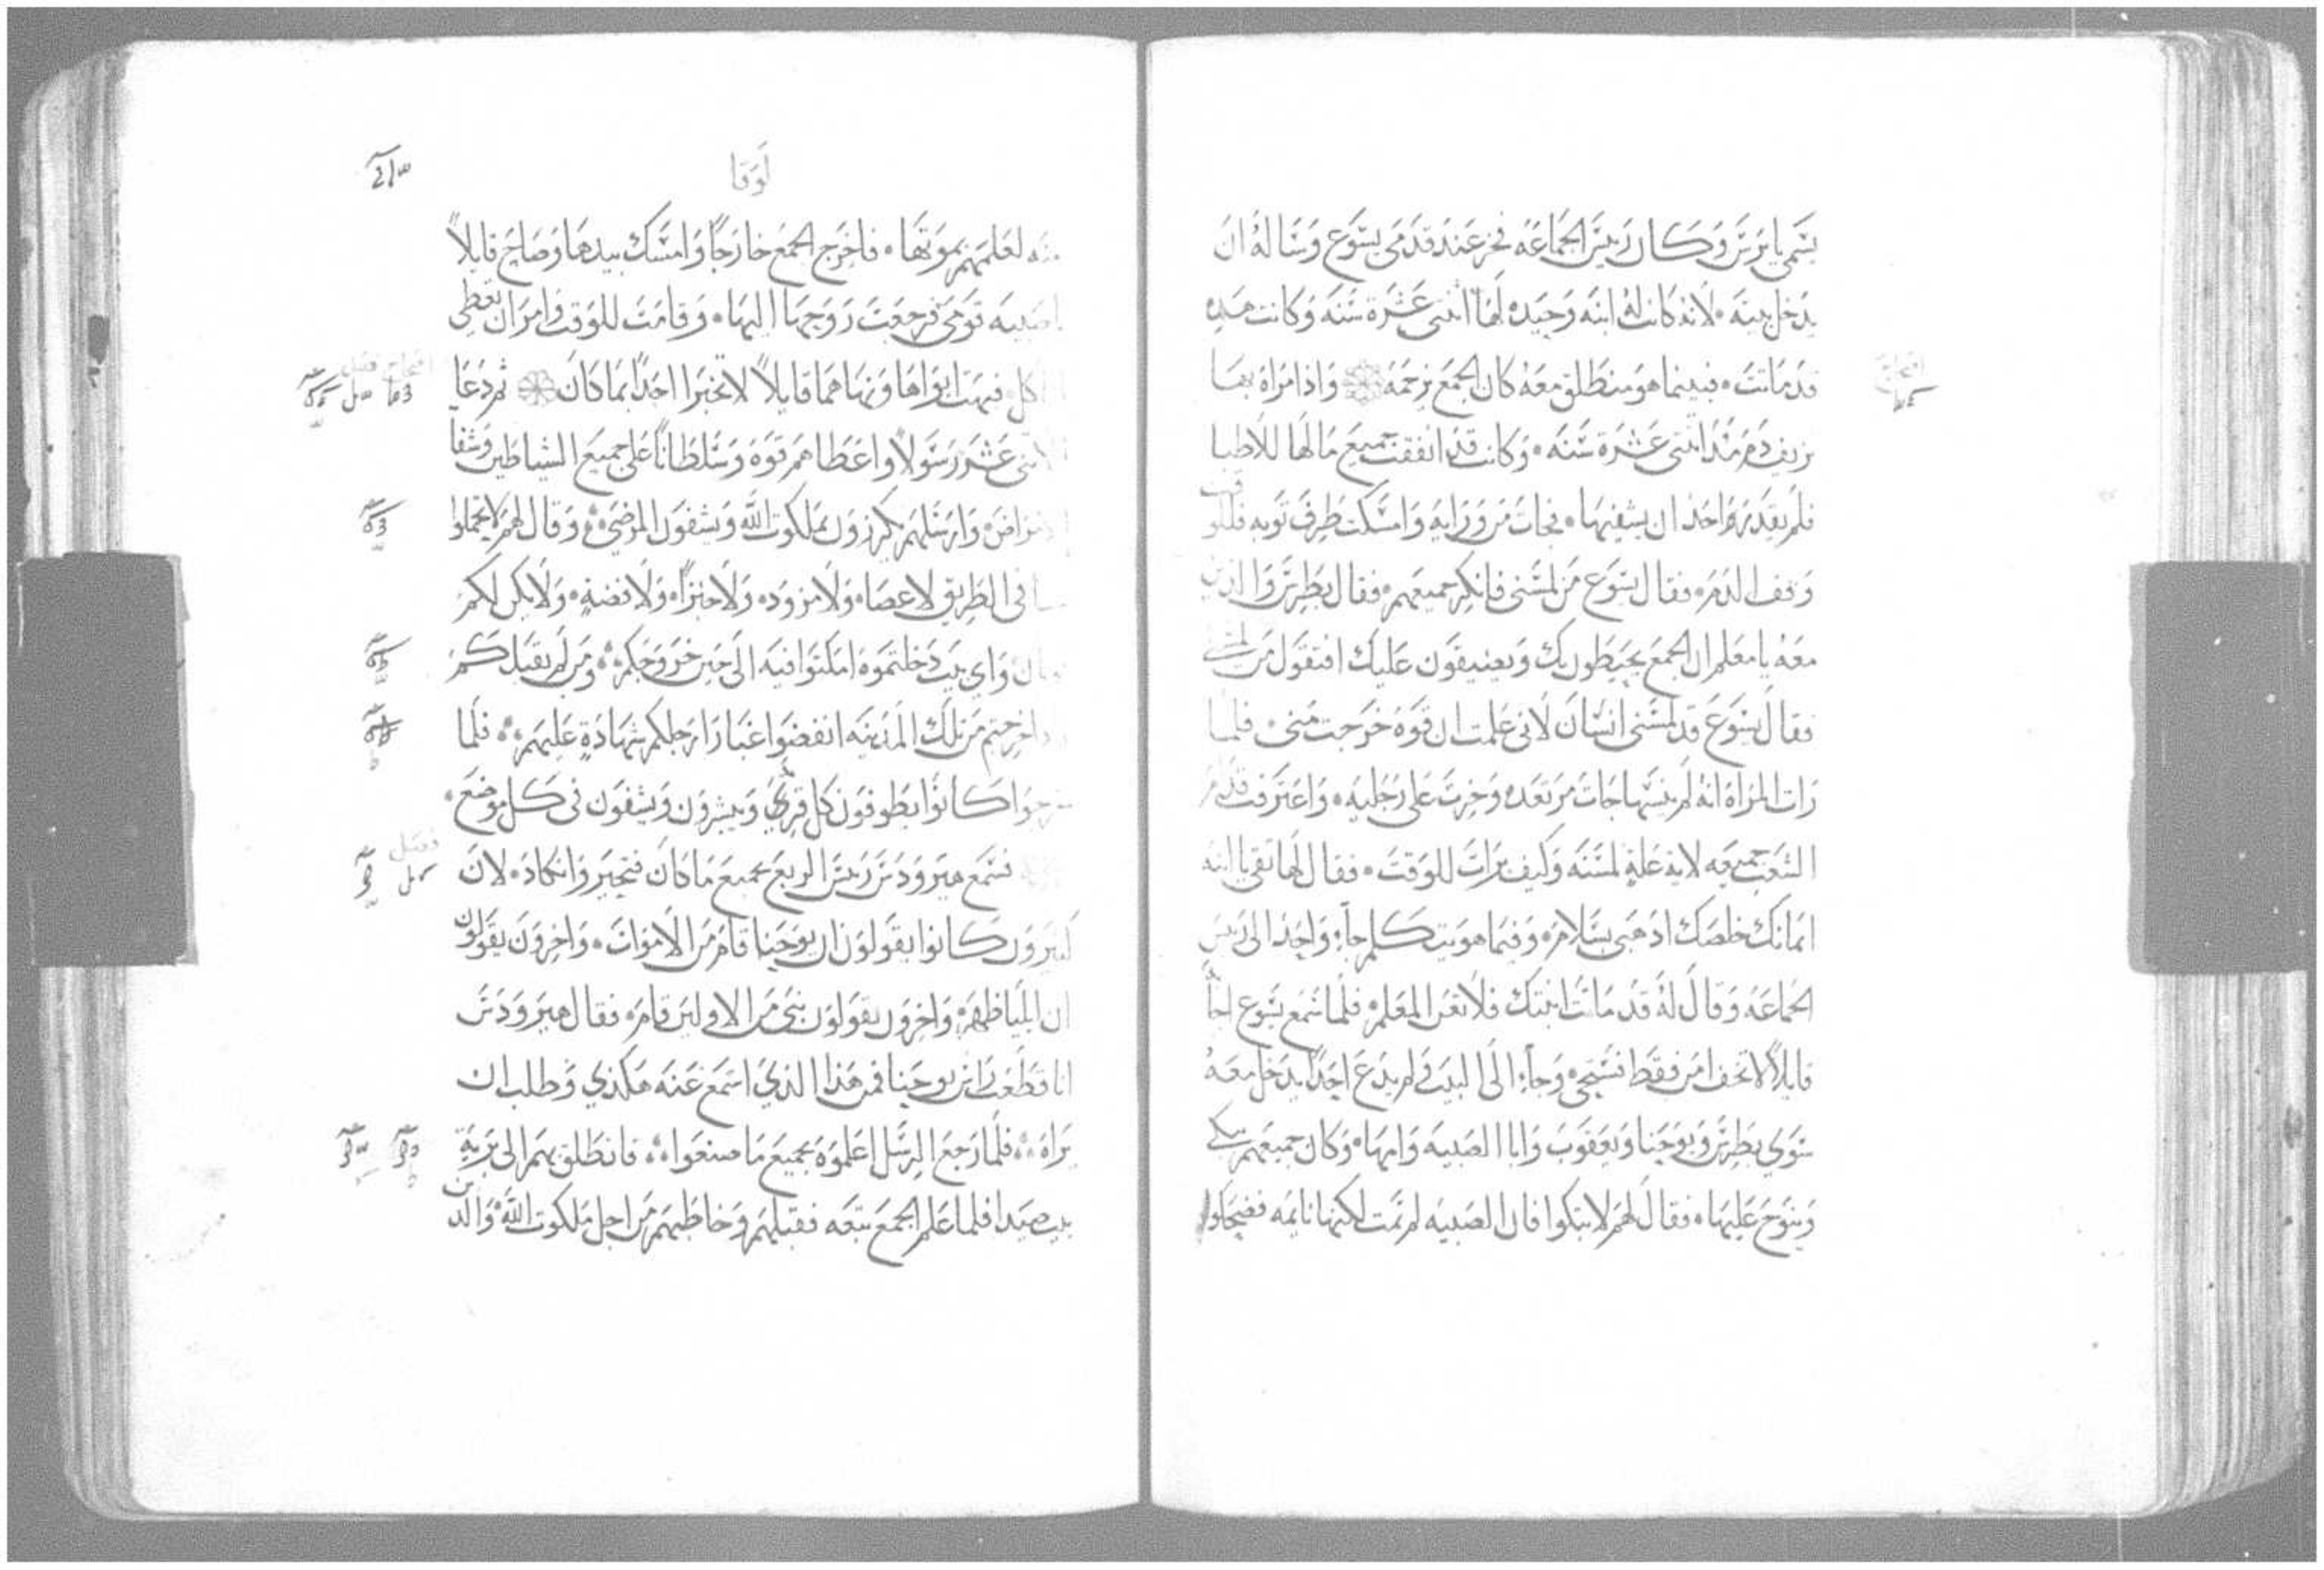 يسمى يايرس وكان رييس الجماعه فخر عند قدمى يسوع وساله ان
يدخل بيته لانه كانت له ابنه وحيده لها اثنتى عشرة سنه وكانت هذه
قد ماتت فبينما هو منطلق معه كان الجمع يزحمه واذا مراة بها
نزيف دم منذ اثنتى عشرة سنه وكانت قد انفقت جميع مالها للاطبا
فلم يقدر واحد ان يشفيها فجات من ورايه وامسكت طرف ثوبه فللوقت
وقف الدم فقال يسوع من لمسنى فانكر جميعهم فقال بطرس والذين
معه يا معلم ان الجمع يحيطون بك ويضيقون عليك افتقول من لمسنى
فقال يسوع قد لمسنى انسان لانى علمت ان قوة خرجت منى فلما
رات المراة انه لم ينسها جات مرتعده وخرت على رجليه واعترفت قدام
الشعب جميعه لاية علة لمسته وكيف برات للوقت فقال لها ثقى يا ابنه
ايمانك خلصك اذهبى بسلام وفيما هو يتكلم جا واحد الى رييس
الجماعه وقال له قد ماتت ابنتك فلا تعن المعلم فلما سمع يسوع اجا
قايلا لا تخف امن فقط فستحيى وجا الى البيت ولم يدع احدا يدخل معه
سوى بطرس ويوحنا ويعقوب وابا الصبيه وامها وكان جميعهم يبكى
وينوح عليها فقال لهم لا تبكوا فان الصبيه لم تمت لكنها نايمه فضحكوا
لوقا
منه لعلمهم بموتها فاخرج الجمع خارجا وامسك بيدها وصاح قايلا
يا صبيه قومى فرجعت روحها اليها وقامت للوقت وامر ان تعطى
لتاكل فبهت ابواها ونهاهما قايلا لا تخبرا احدا بما كان ثم دعا
الاثنى عشر رسولا واعطاهم قوة وسلطانا على جميع الشياطين وشفا
الامراض وارسلهم يكرزون بملكوت الله ويشفون المرضى وقال لهم لا تحملوا
شيا فى الطريق لا عصا ولا مزود ولا خبزا ولا فضة ولا يكن لكم
ثوبان واى بيت دخلتموه امكثوا فيه الى حين خروجكم ومن لم يقبلكم
اذا خرجتم من تلك المدينه انفضوا غبار ارجلكم شهادة عليهم فلما
خرجوا كانوا يطوفون كل قرية ويبشرون ويشفون فى كل موضع
فسمع هيرودس رييس الربع بجميع ما كان فتحير وانكاد لان
كثيرون كانوا يقولون ان يوحنا قام من الاموات واخرون يقولون
ان ايليا ظهر واخرون يقولون نبى من الاولين قام فقال هيرودس
انا قطعت راس يوحنا فمن هذا الذى اسمع عنه هكذى وطلب ان
يراه فلما رجع الرسل اعلموه بجميع ما صنعوا فانطلق بهم الى برية
بيت صيدا فلما علم الجمع تبعه فقبلهم وخاطبهم من اجل ملكوت الله والذين